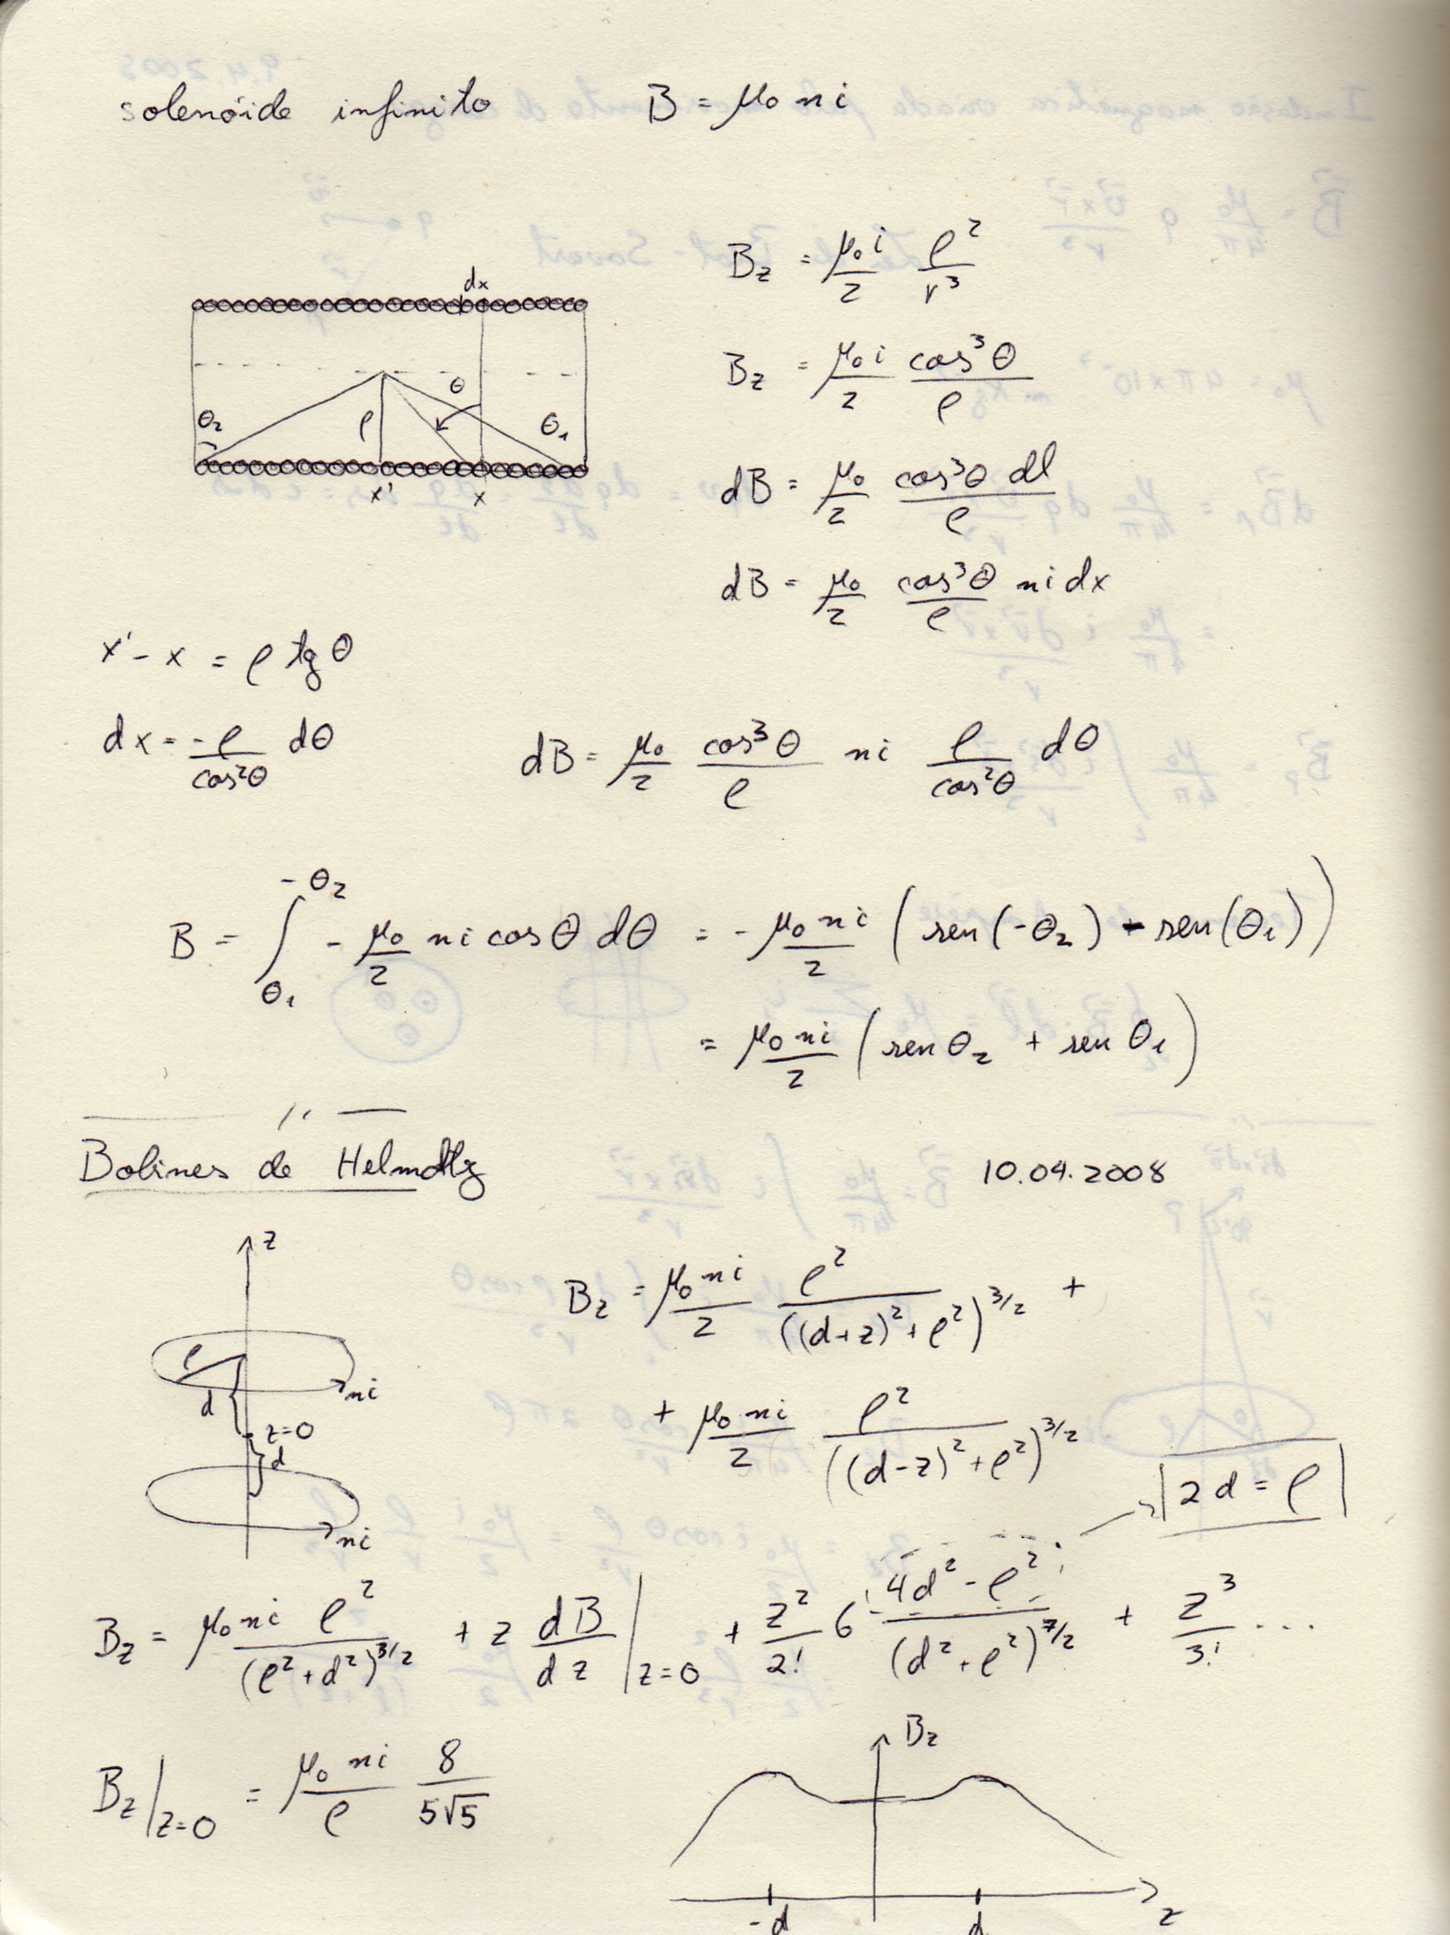 solenóide infinito B = μ₀ n i
B_z = μ₀ i / 2 ρ² / r³
dx
θ₂ ρ θ θ₁
x' x
B_z = μ₀ i / 2 cos³θ / ρ
dB = μ₀ / 2 cos³θ dl / ρ
dB = μ₀ / 2 cos³θ / ρ n i dx
x' - x = ρ tg θ
dx = -ρ / cos²θ dθ
dB = μ₀ / 2 cos³θ / ρ n i ρ / cos²θ dθ
B = ∫_{θ₁}^{-θ₂} - μ₀ / 2 n i cos θ dθ = - μ₀ n i / 2 (sen(-θ₂) - sen(θ₁))
= μ₀ n i / 2 (sen θ₂ + sen θ₁)
Bobines de Helmoltz 10.04.2008
z
ρ
d
ni
z=0
d
ni
B_z = μ₀ n i / 2 ρ² / ((d+z)² + ρ²)^{3/2} +
+ μ₀ n i / 2 ρ² / ((d-z)² + ρ²)^{3/2}
2d = ρ
B_z = μ₀ n i ρ² / (ρ² + d²)^{3/2} + z dB/dz |_{z=0} + z²/2! 6 4d² - ρ² / (d² + ρ²)^{7/2} + z³/3! ...
B_z |_{z=0} = μ₀ n i / ρ 8 / 5√5
B_z
-d d z